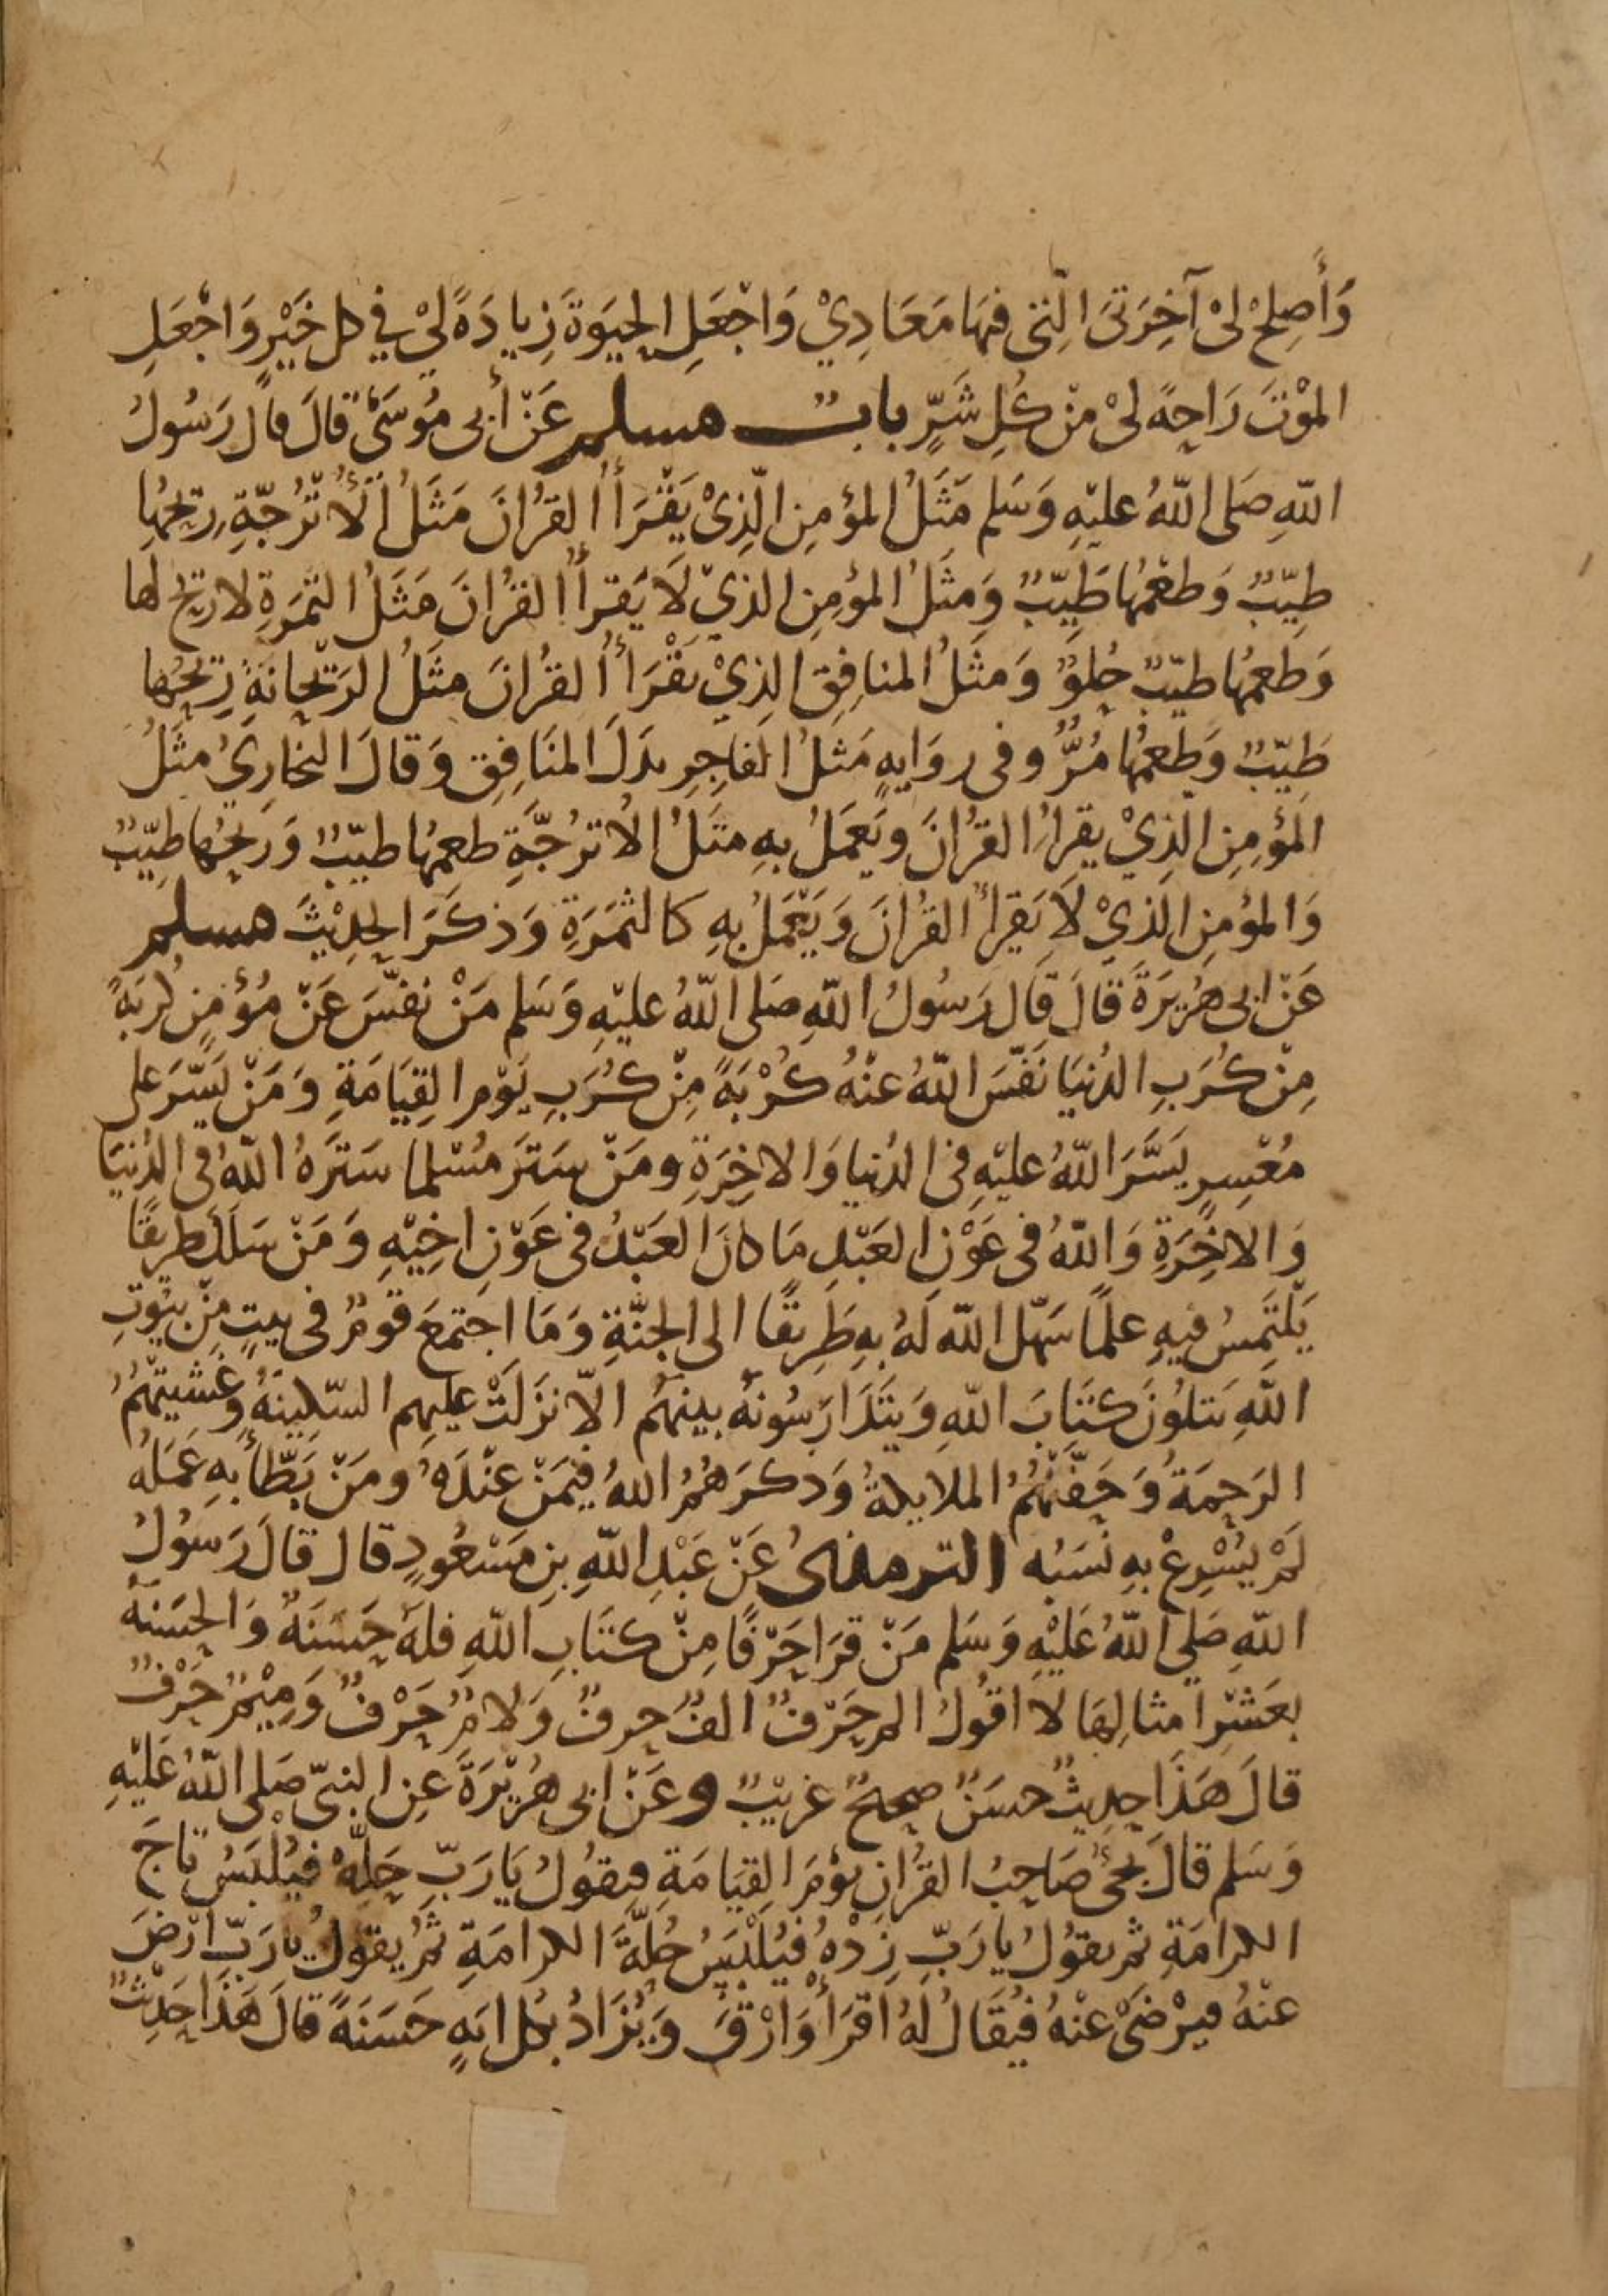 وَأَصْلِحْ لِيْ آخِرَتِيَ الَّتِي فِيهَا مَعَادِيْ وَاجْعَلِ الحَيَوةَ زِيادَةً لِيْ فِي كل خَيْرٍ وَاجْعَلِ
المَوْتَ رَاحَةً لِيْ مِنْ كُلِّ شَرٍّ بابٌ مسلم عَنْ أَبِي مُوسَىٰ قَالَ قَال رَسُولُ
اللّهِ صَلى اللّهُ عليْهِ وَسَلم مَثَلُ المؤمِنِ الَّذِيْ يَقْرَأُ القُرْانَ مَثَلُ الأُتْرُجَّةِ رِيحُهَا
طَيِّبٌ وَطعْمُهَا طَيِّبٌ وَمثَلُ المؤمِنِ الذِيْ لَا يَقرأُ القُرْانَ مَثَلُ التمْرَةِ لا ريحَ لها
وَطعمُهَا طيّبٌ حُلوٌ وَمثَلُ المنَافِقِ الذِيْ يَقْرَأُ القُرْانَ مثَلُ الرَيْحَانَةِ رِيْحُهَا
طَيِّبٌ وَطعمُهَا مُرٌّ وفى روَايةٍ مَثلُ الفَاجِرِ بدَلَ المنَافِقِ وَقالَ البخَارِيُ مثَلُ
المؤمِنِ الَّذِيْ يقرأُ القرْانَ ويَعمَلُ بهِ مثَلُ الأترُجَّةِ طعمُهَا طيّبٌ وَريحُهَا طيِّبٌ
وَالمؤمِنِ الَّذِيْ لَا يَقرأُ القرْانَ وَيَعْمَلُ بهِ كالتمَرَةِ وَذكَرَ الحدِيْثَ مسلم
عَنْ ابى هُرَيرَةَ قَالَ قَال رَسُولُ اللّهِ صَلى اللّهُ عليْهِ وَسَلم مَنْ نفَّسَ عَنْ مُؤمِنٍ كُربَةً
مِنْ كُرَبِ الدُنيَا نَفَّسَ اللّهُ عنْهُ كُرْبَةً مِنْ كُرَبِ يَوْمِ القِيَامَةِ وَمَنْ يَسَّرَ على
مُعْسِرٍ يَسَّرَ اللّهُ عليْهِ فى الدُنيا وَالاخِرَةِ ومَنْ سَتَرَ مُسْلما سَتَرَهُ اللّهُ فى الدُنيَا
وَالاخِرَةِ وَاللّهُ فى عَوْنِ العَبْدِ مَا كانَ العَبْدُ فى عَوْنِ اخِيْهِ وَمَنْ سَلَكَ طَرِيقًا
يَلْتَمِسُ فِيهِ علمًا سَهّل اللّه لَهُ بِهِ طَرِيقًا الى الجنَّةِ وَمَا اجتمَعَ قومٌ فى بيتٍ مِنْ بيُوتِ
اللّهِ يَتلُونَ كتَابَ اللّهِ وَيتَدَارَسُونهُ بينهُم الّا نزَلَتْ عليهِم السّكِينَةُ وغشيَتْهُمُ
الرَحمَةُ وَحَفَّتْهُمُ الملايكةُ وَذكرَهُمُ اللهُ فيْمَنْ عنْدَهُ ومَنْ بَطّأَ بِهِ عَمَلُهُ
لَمْ يُسْرِعْ بِهِ نَسَبُه الترمذى عَنْ عَبْدِ اللّهِ بنِ مَسْعُودٍ قال قالَ رَسُولُ
اللّهِ صَلى اللّهُ عَلَيْهِ وَسَلم مَنْ قرَا حَرْفًا مِنْ كتَابِ اللّهِ فلهُ حَسَنَةٌ وَالحسَنَةُ
بعَشْرِ امثالِهَا لَا اقُولُ الم حَرْفٌ الفٌ حرفٌ وَلامٌ حَرْفٌ وَمِيْمٌ حَرْفٌ
قالَ هَذَا حدِيثٌ حسَنٌ صحيحٌ غريْبٌ وعَنْ ابى هُرَيْرَةَ عنِ النبىّ صَلى اللّهُ عَليْهِ
وَسَلم قالَ يجئُ صَاحِبُ القرُانِ يوْمَ القِيَامَةِ فيقُولُ يَارَبِّ حَلّهْ فيُلْبَسُ تاجَ
الكرامَةِ ثم يقوُلُ يا رَبِّ زِدْهُ فيُلْبَسُ حُلَّةَ الكرامَةِ ثمّ يقُولُ يا رَبِّ ارْضَ
عنْهُ فيرْضَىٰ عنْهُ فيُقَالُ لَهُ اقرَأْ وَارْقَ وَيُزَادُ بكل ايَةٍ حَسَنَةً قالَ هَذَا حَدِيْثٌ